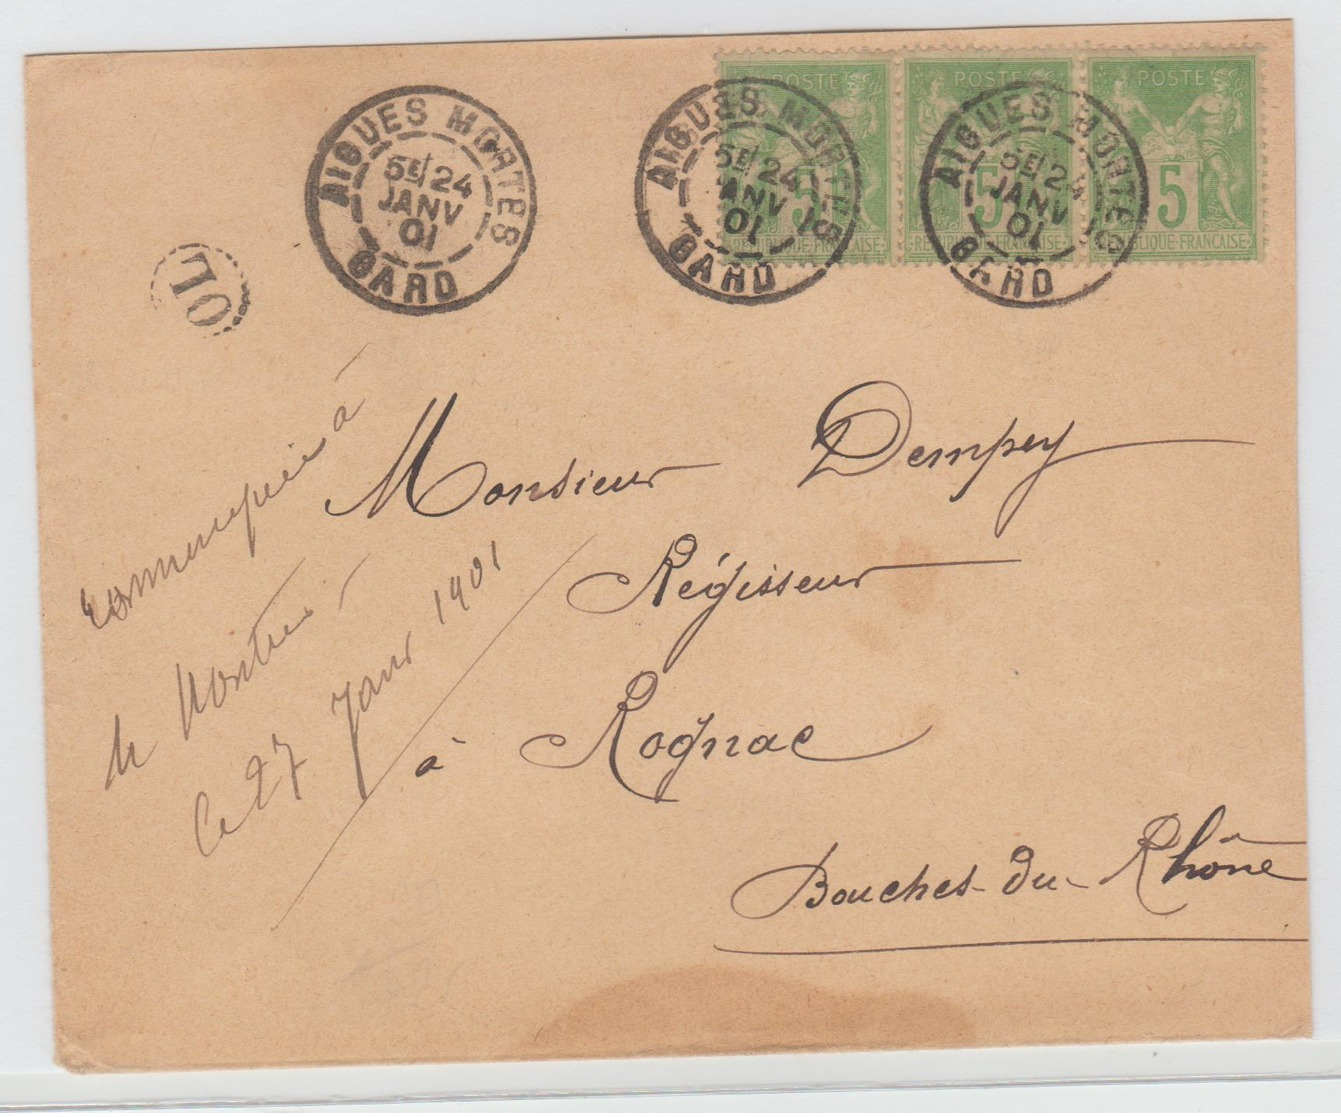 POSTE POSTE POSTE
5 5 5
RÉPUBLIQUE FRANÇAISE RÉPUBLIQUE FRANÇAISE RÉPUBLIQUE FRANÇAISE
AIGUES MORTES
5E/24
JANV
01
GARD
AIGUES MORTES
5E/24
JANV
01
GARD
AIGUES MORTES
5E/24
JANV
01
GARD
OL
Monsieur Dempey
Régisseur
à Rognac
Bouches-du-Rhône
communiquée à
le 27 Janv 1901